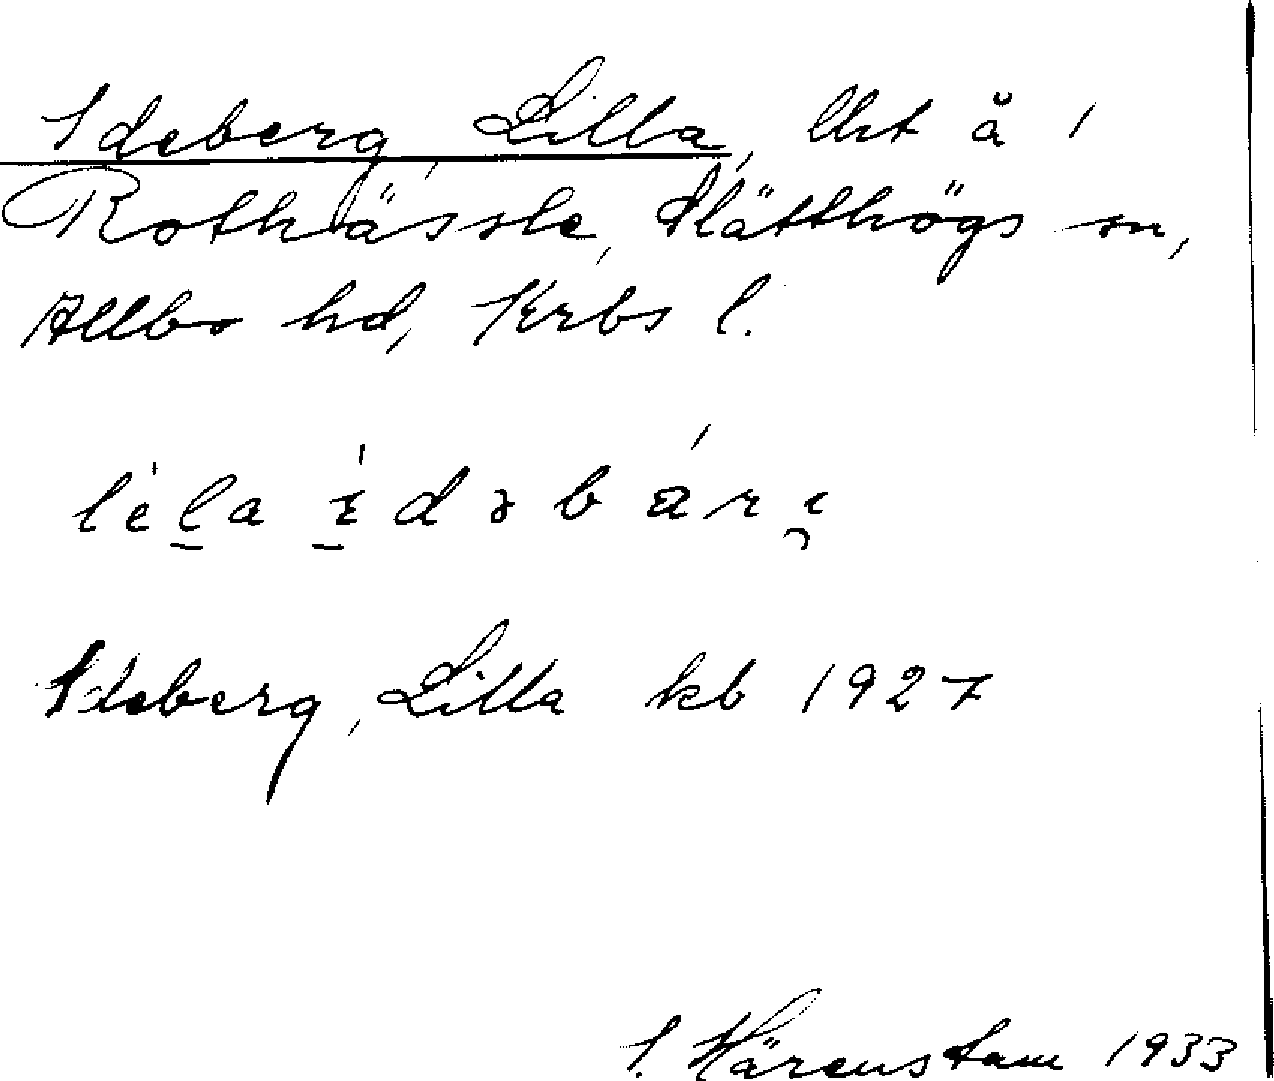 Ideberg, Lilla, lht å 1
Rothässle, Slätthögs sn,
Allbo hd, Krbs l.
Ideberg, Lilla kb 1927
S. Härenstam 1933